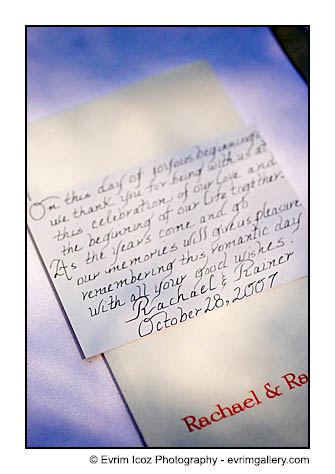 On this day of joyous beginnings
we thank you for being with us at
this celebration of our love and
the beginning of our life together.
As the years come and go
our memories will give us pleasure
remembering this romantic day
with all your good wishes.
Rachael & Rainer
October 28, 2007
Rachael & Ra
© Evrim Icoz Photography - evrimgallery.com